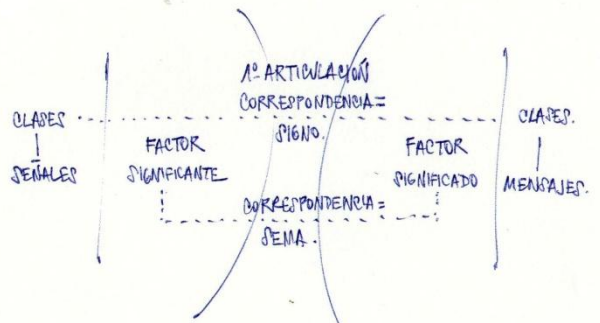 1º ARTICULACIÓN
CORRESPONDENCIA =
SIGNO.
CLASES
SEÑALES
FACTOR
SIGNIFICANTE
FACTOR
SIGNIFICADO
CLASES.
MENSAJES.
CORRESPONDENCIA =
SEMA.